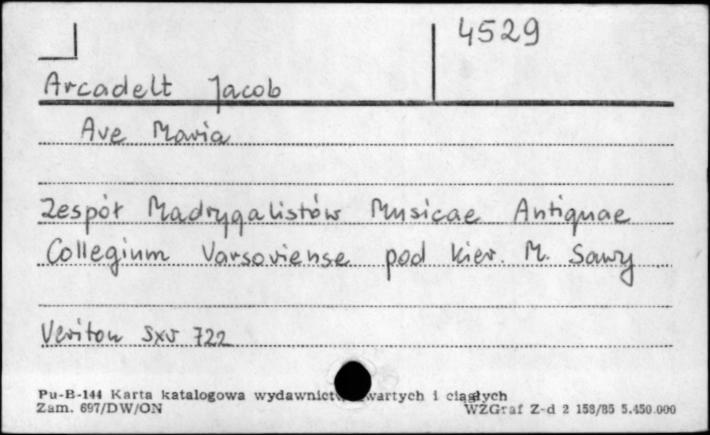 4529
Arcadelt Jacob
Ave Maria
Zespół Madrygalistów Musicae Antiquae
Collegium Varsoviense pod kier. M. Sawy
Veriton sxv 722
Pu-B-144 Karta katalogowa wydawnictw wartych i ciągłych
Zam. 697/DW/ON WZGraf Z-d 2 158/85 5.450.000